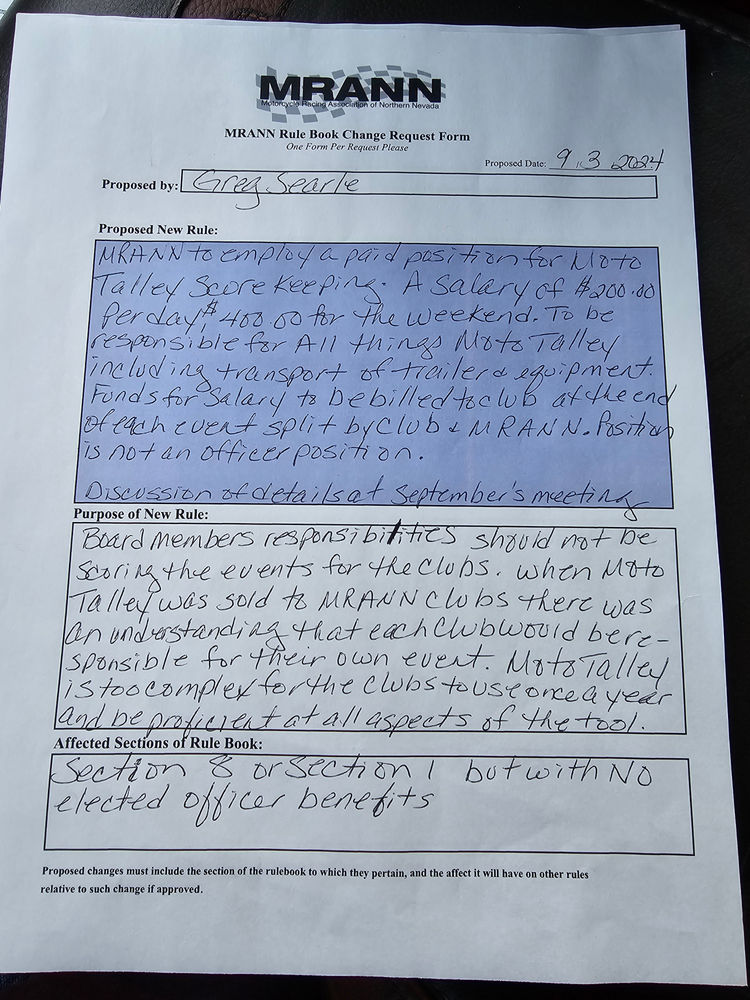 MRANN
Motorcycle Racing Association of Northern Nevada
MRANN Rule Book Change Request Form
One Form Per Request Please
Proposed Date: 9.3.2024
Proposed by: Greg Searle
Proposed New Rule:
MRANN to employ a paid position for Moto
Talley Score Keeping. A Salary of $200.00
Per day, $400.00 for the weekend. To be
responsible for All things Moto Talley
including transport of trailer & equipment.
Funds for Salary to be billed to club at the end
of each event split by Club & MRANN. Position
is not an officer position.
Discussion of details at September's meeting
Purpose of New Rule:
Board members responsibilities should not be
scoring the events for the clubs. When Moto
Talley was sold to MRANN Clubs there was
an understanding that each Club would be re-
sponsible for their own event. Moto Talley
is too complex for the clubs to use once a year
and be proficient at all aspects of the tool.
Affected Sections of Rule Book:
Section 8 or Section 1 but with NO
elected officer benefits
Proposed changes must include the section of the rulebook to which they pertain, and the affect it will have on other rules
relative to such change if approved.